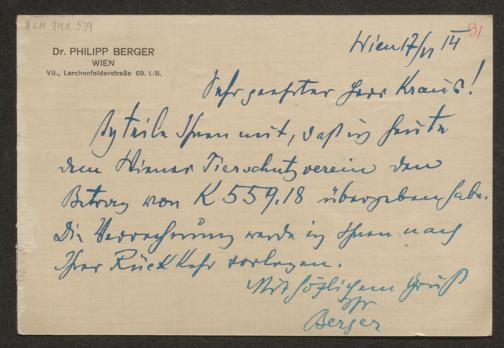 H.I.N. 241.539
91
Dr. PHILIPP BERGER
WIEN
VII., Lerchenfelderstraße 69. I./8.
Wien 17/VI 14
Sehr geehrter Herr Kraus!
Ich teile Ihnen mit, daß ich heute
dem Wiener Tierschutzverein den
Betrag von K 559.18 übergeben habe.
Die Verrechnung werde ich Ihnen nach
Ihrer Rückkehr vorlegen.
Mit herzlichem Gruß
Ihr
Berger